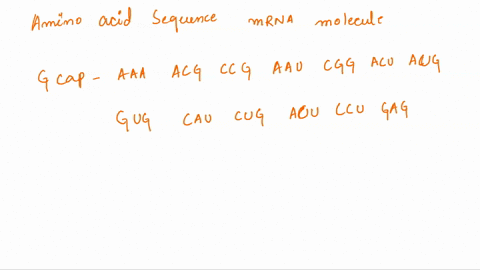 Amino acid Sequence mRNA molecule
G cap - AAA ACG CCG AAU CGG ACU AUG
GUG CAU CUG ACU CCU GAG